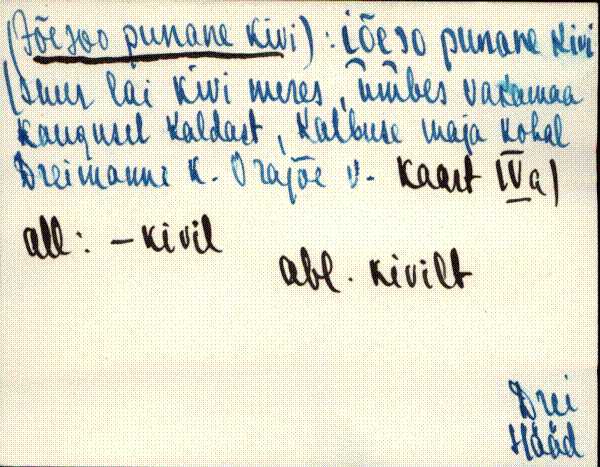 (Jõesoo punane kivi): iõeso punane kivi
(suur lai kivi meres, ümbes vakamaa
kaugusel kaldast, Kalbuse maja kohal
Dreimanni k. Orajõe v. Kaart IVa)
all: – kivil
abl. kivilt
Drei
Hääd